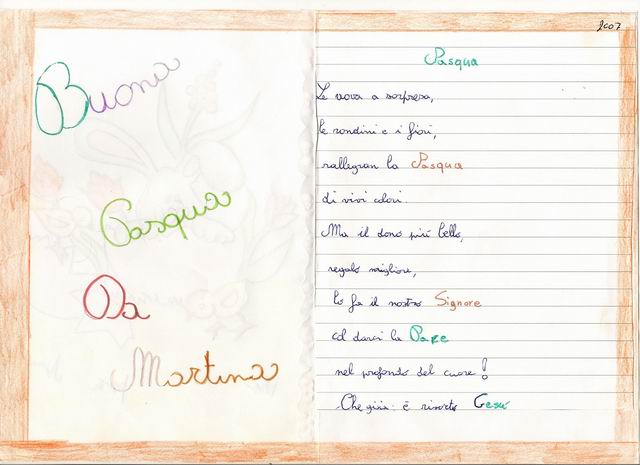 Buona
Pasqua
Da
Martina
2007
Pasqua
Le uova a sorpresa,
le rondini e i fiori,
rallegran la Pasqua
di vivi colori.
Ma il dono più bello,
regalo migliore,
lo fa il nostro Signore
col darci la Pace
nel profondo del cuore!
Che gioia: è risorto Gesù